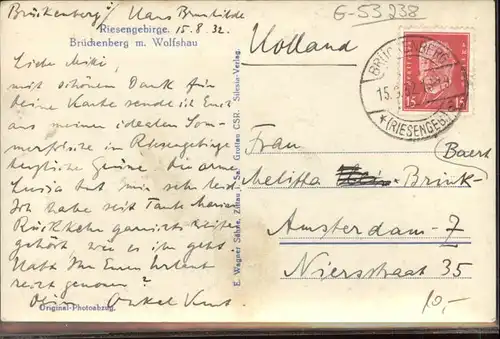 G-53238
Brückenberg/ Haus Brunhilde
Riesengebirge. 15.8.32.
Brückenberg m. Wolfshau
Holland
Liebe Miki,
mit schönem Dank für
Deine Karte sende ich Euch
aus meinem idealen Som-
merfrische im Riesengebirge
herzliche Grüsse. Die arme
Lussia tut mir sehr leid.
Ich habe seit Tante Maria
Rückkehr garnichts weiter
gehört, wie es ihr geht.
Habt Ihr Euren Urlaub
schon genommen?
Dein Onkel Kurt
Original-Photoabzug.
E. Wagner Söhne, Zittau i. Sa. Grottau CSR. Silesia-Verlag.
BRÜCKENBERG
15.8.32
*(RIESENGEB.)
15 15
Frau
(Baert)
Melitta Brink-
Amsterdam-Z
Niersstraat 35
10,-